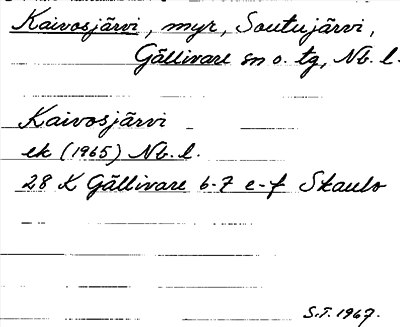 Kaivosjärvi, myr, Soutujärvi,
Gällivare sn o. tg, Nb. l.
Kaivosjärvi
ek (1965) Nb. l.
28 K Gällivare 6-7 e-f Skaulo
S.T. 1967.